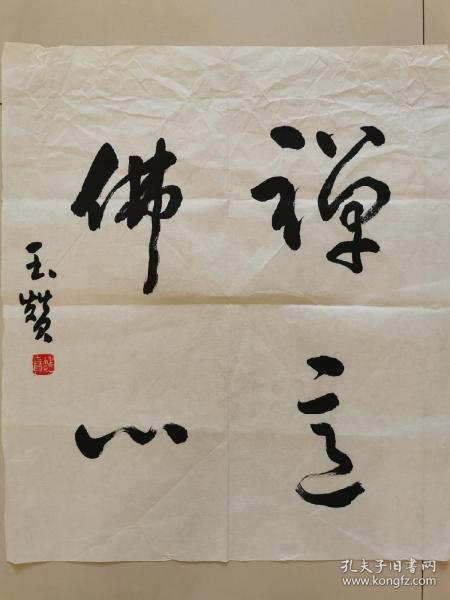 禅意
佛心
玉赞
孔夫子旧书网
www.kongfz.com